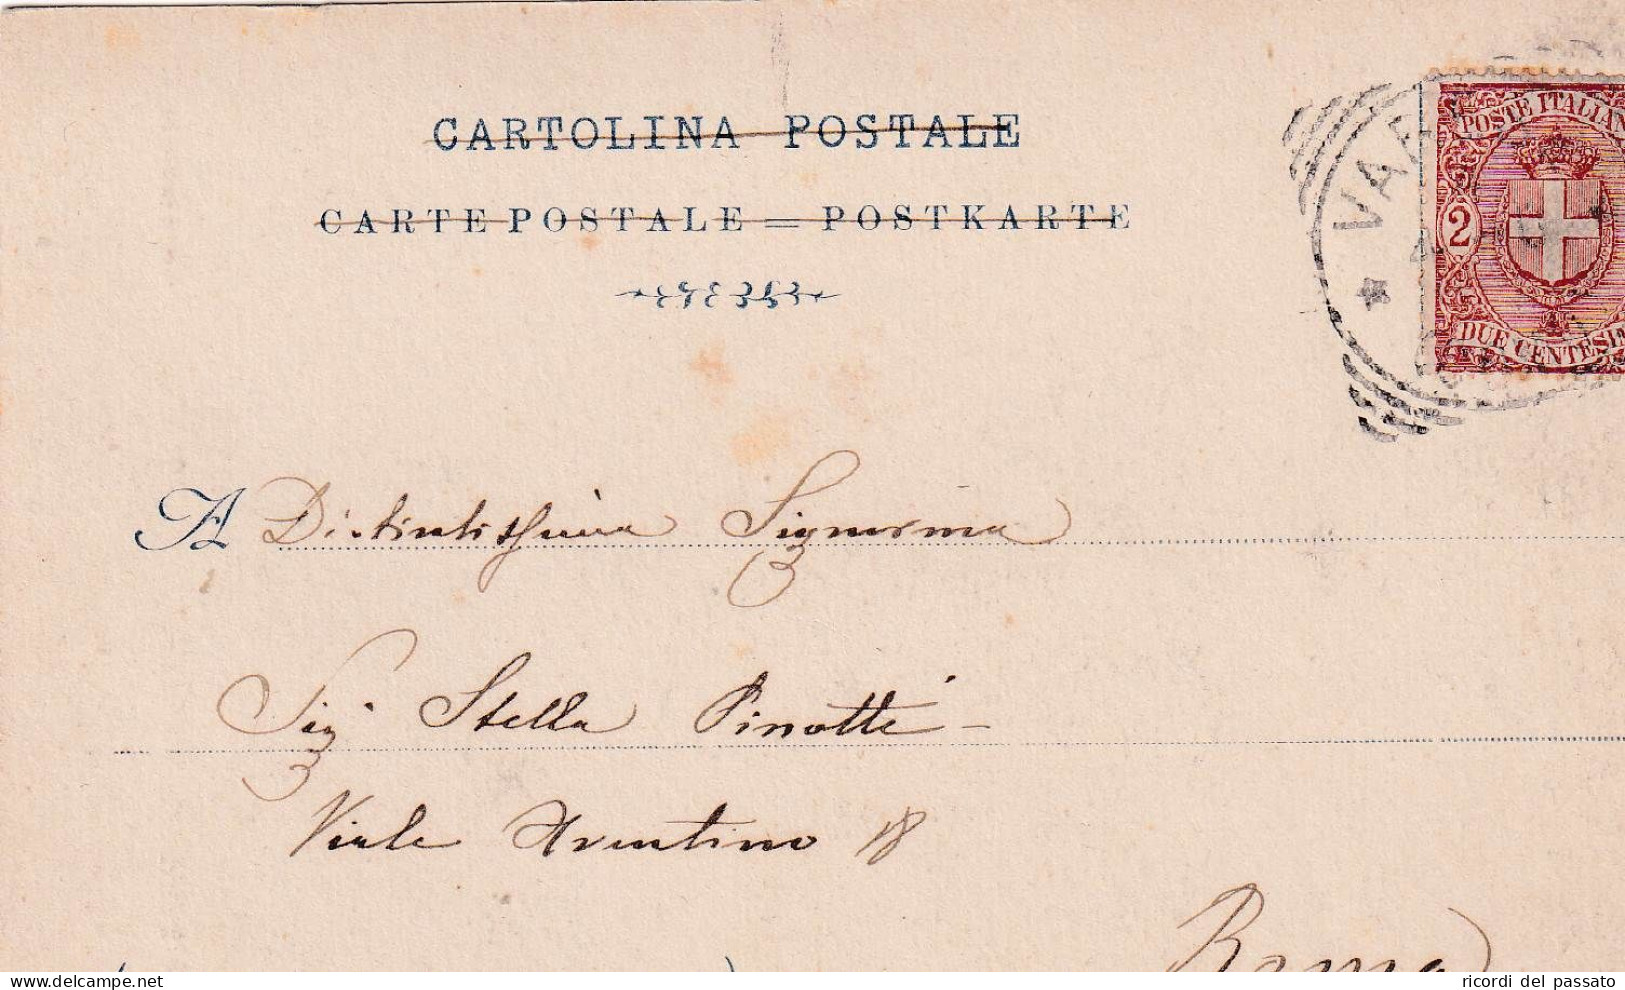 CARTOLINA POSTALE
CARTE POSTALE = POSTKARTE
POSTE ITALIAN
2
DUE CENTESI
A Distintissima Signorina
Sigᵃ Stella Pinotti
Viale Aventino 18
Roma
delcampe.net
ricordi del passato